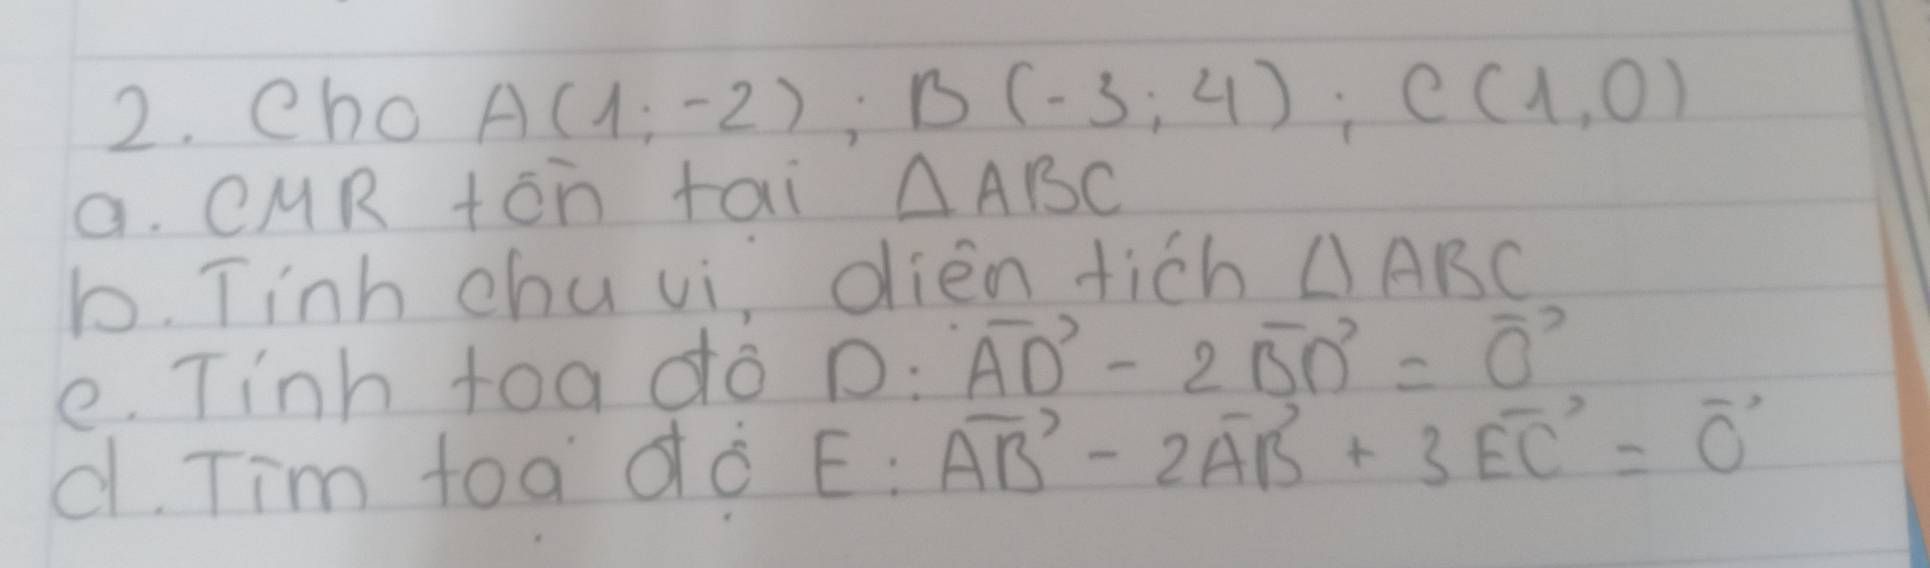 2. Cho A(1; -2); B(-3; 4); C(1,0)
a. CMR tồn tại △ABC
b. Tính chu vi, diện tích △ABC
c. Tính toạ độ D: \overrightarrow{AD} - 2\overrightarrow{BD} = \overrightarrow{0}
d. Tìm toạ độ E: \overrightarrow{AB} - 2\overrightarrow{AB} + 3\overrightarrow{EC} = \overrightarrow{0}